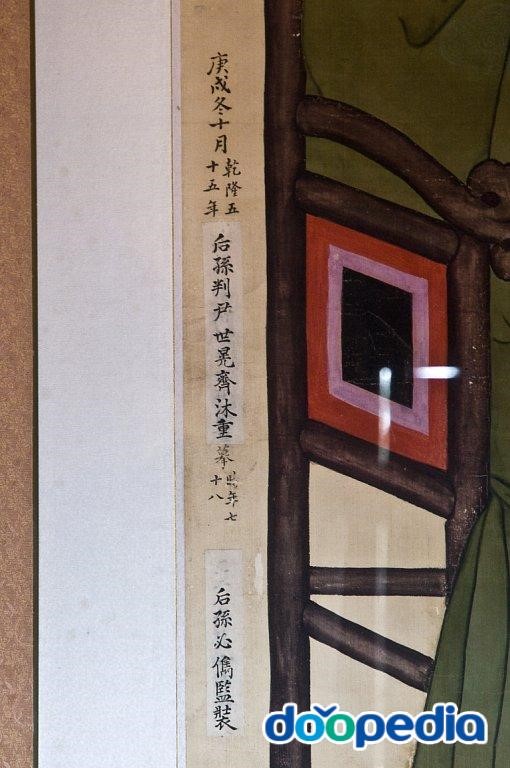 庚戌冬十月
乾隆五
十五年
后孫判尹 世晃齊沐重摹
時年七
十八
后孫必儁監裝
doopedia